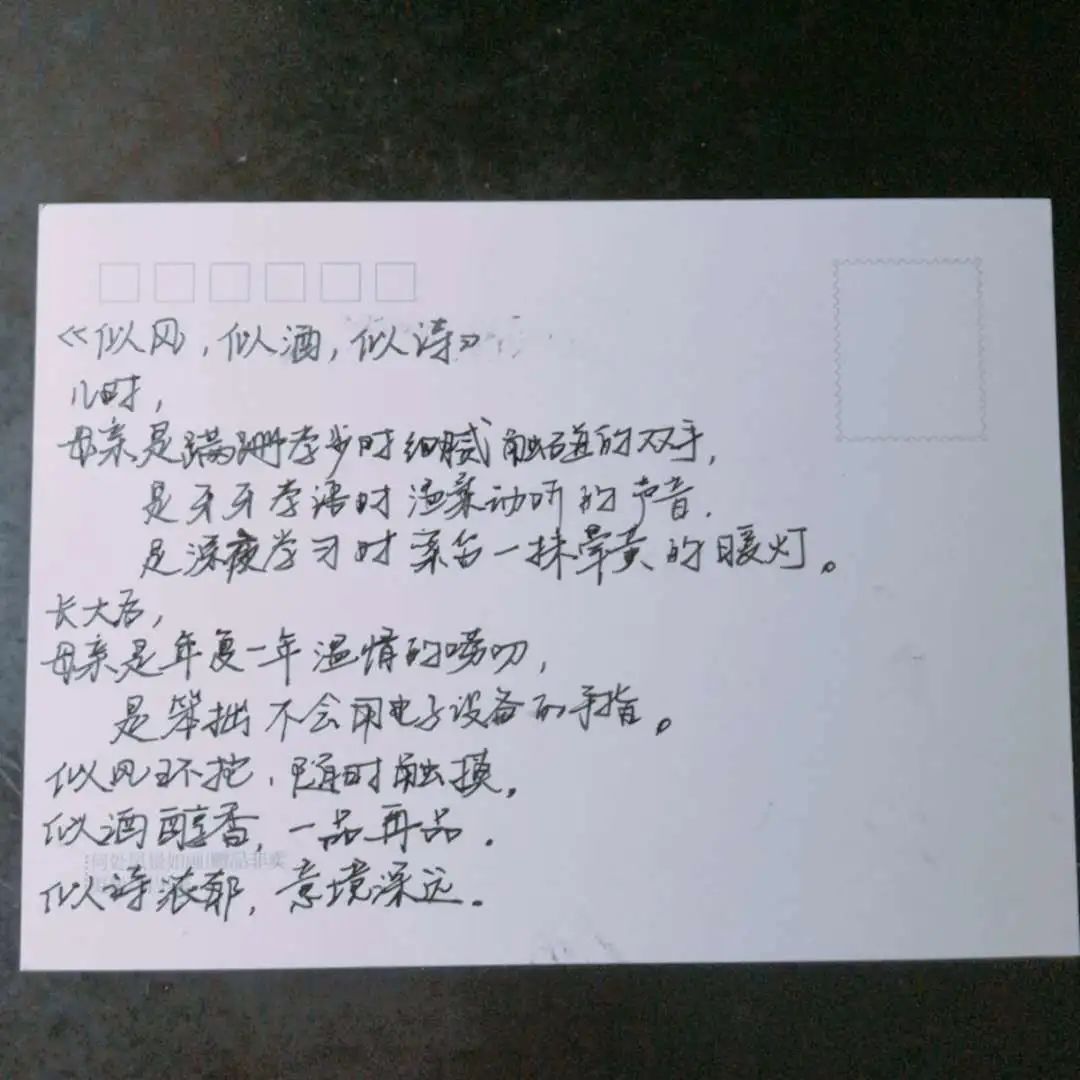 《似风,似酒,似诗》
儿时,
母亲是蹒跚学步时细腻触碰的双手,
是牙牙学语时温柔动听的声音.
是深夜学习时案台一抹晕黄的暖灯。
长大后,
母亲是年复一年温情的唠叨,
是笨拙不会用电子设备的手指。
似风环抱,随时触摸。
似酒醇香,一品再品.
何处风景如画|赠品非卖
似诗浓郁,意境深远.